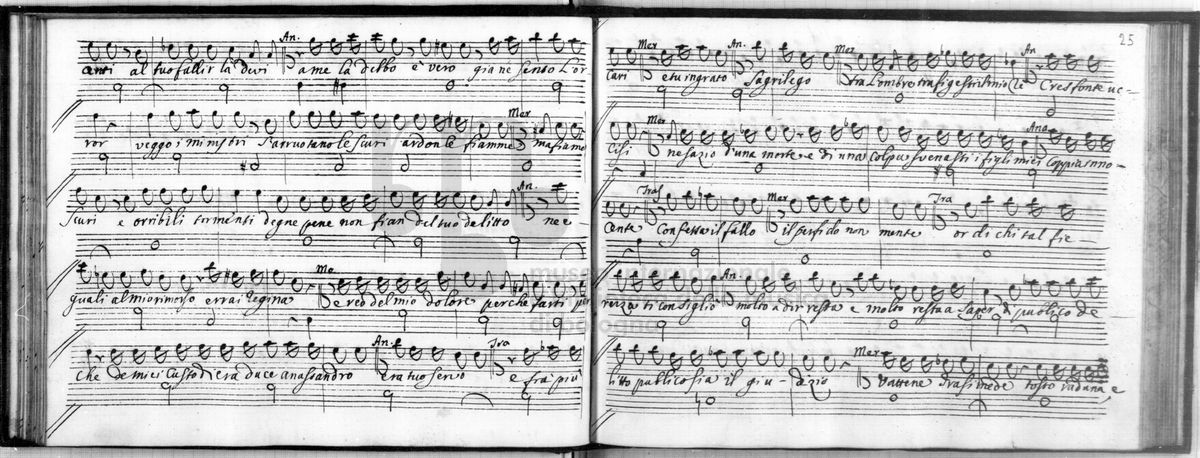 An.
anti al tuo fallir la devi ame la debbo è vero gia ne sento L'or
Mer
ror veggo i ministri s'arruotano le scuri ardon le fiamme ma fiame
An.
scuri e orribili tormenti degne pene non fian del tuo delitto ne e
Me
quali al mio rimorso errai Regina e reo del mio dolore perche farti
An. Tra
che de miei Custodi era duce Anassandro era tuo servo e fra più
25
Mer An. Mer An
Cari e tu ingrato Sagrilego tra l'ombre trafigesti Cresfonte uc-
Mer Ana
cisi ne sazio d'una morte e di una colpa svenasti i figli miei Coppia inno-
Tras Mer Tra
cente Confessa il fallo il perfido non mente or di chi tal fie-
An.
rezza ti consigliò molto a dir resta e molto resta a saper publico de
Mer
litto publico sia il giudizio Vattene Trasimede tosto radana e
museo internazionale
di bologna